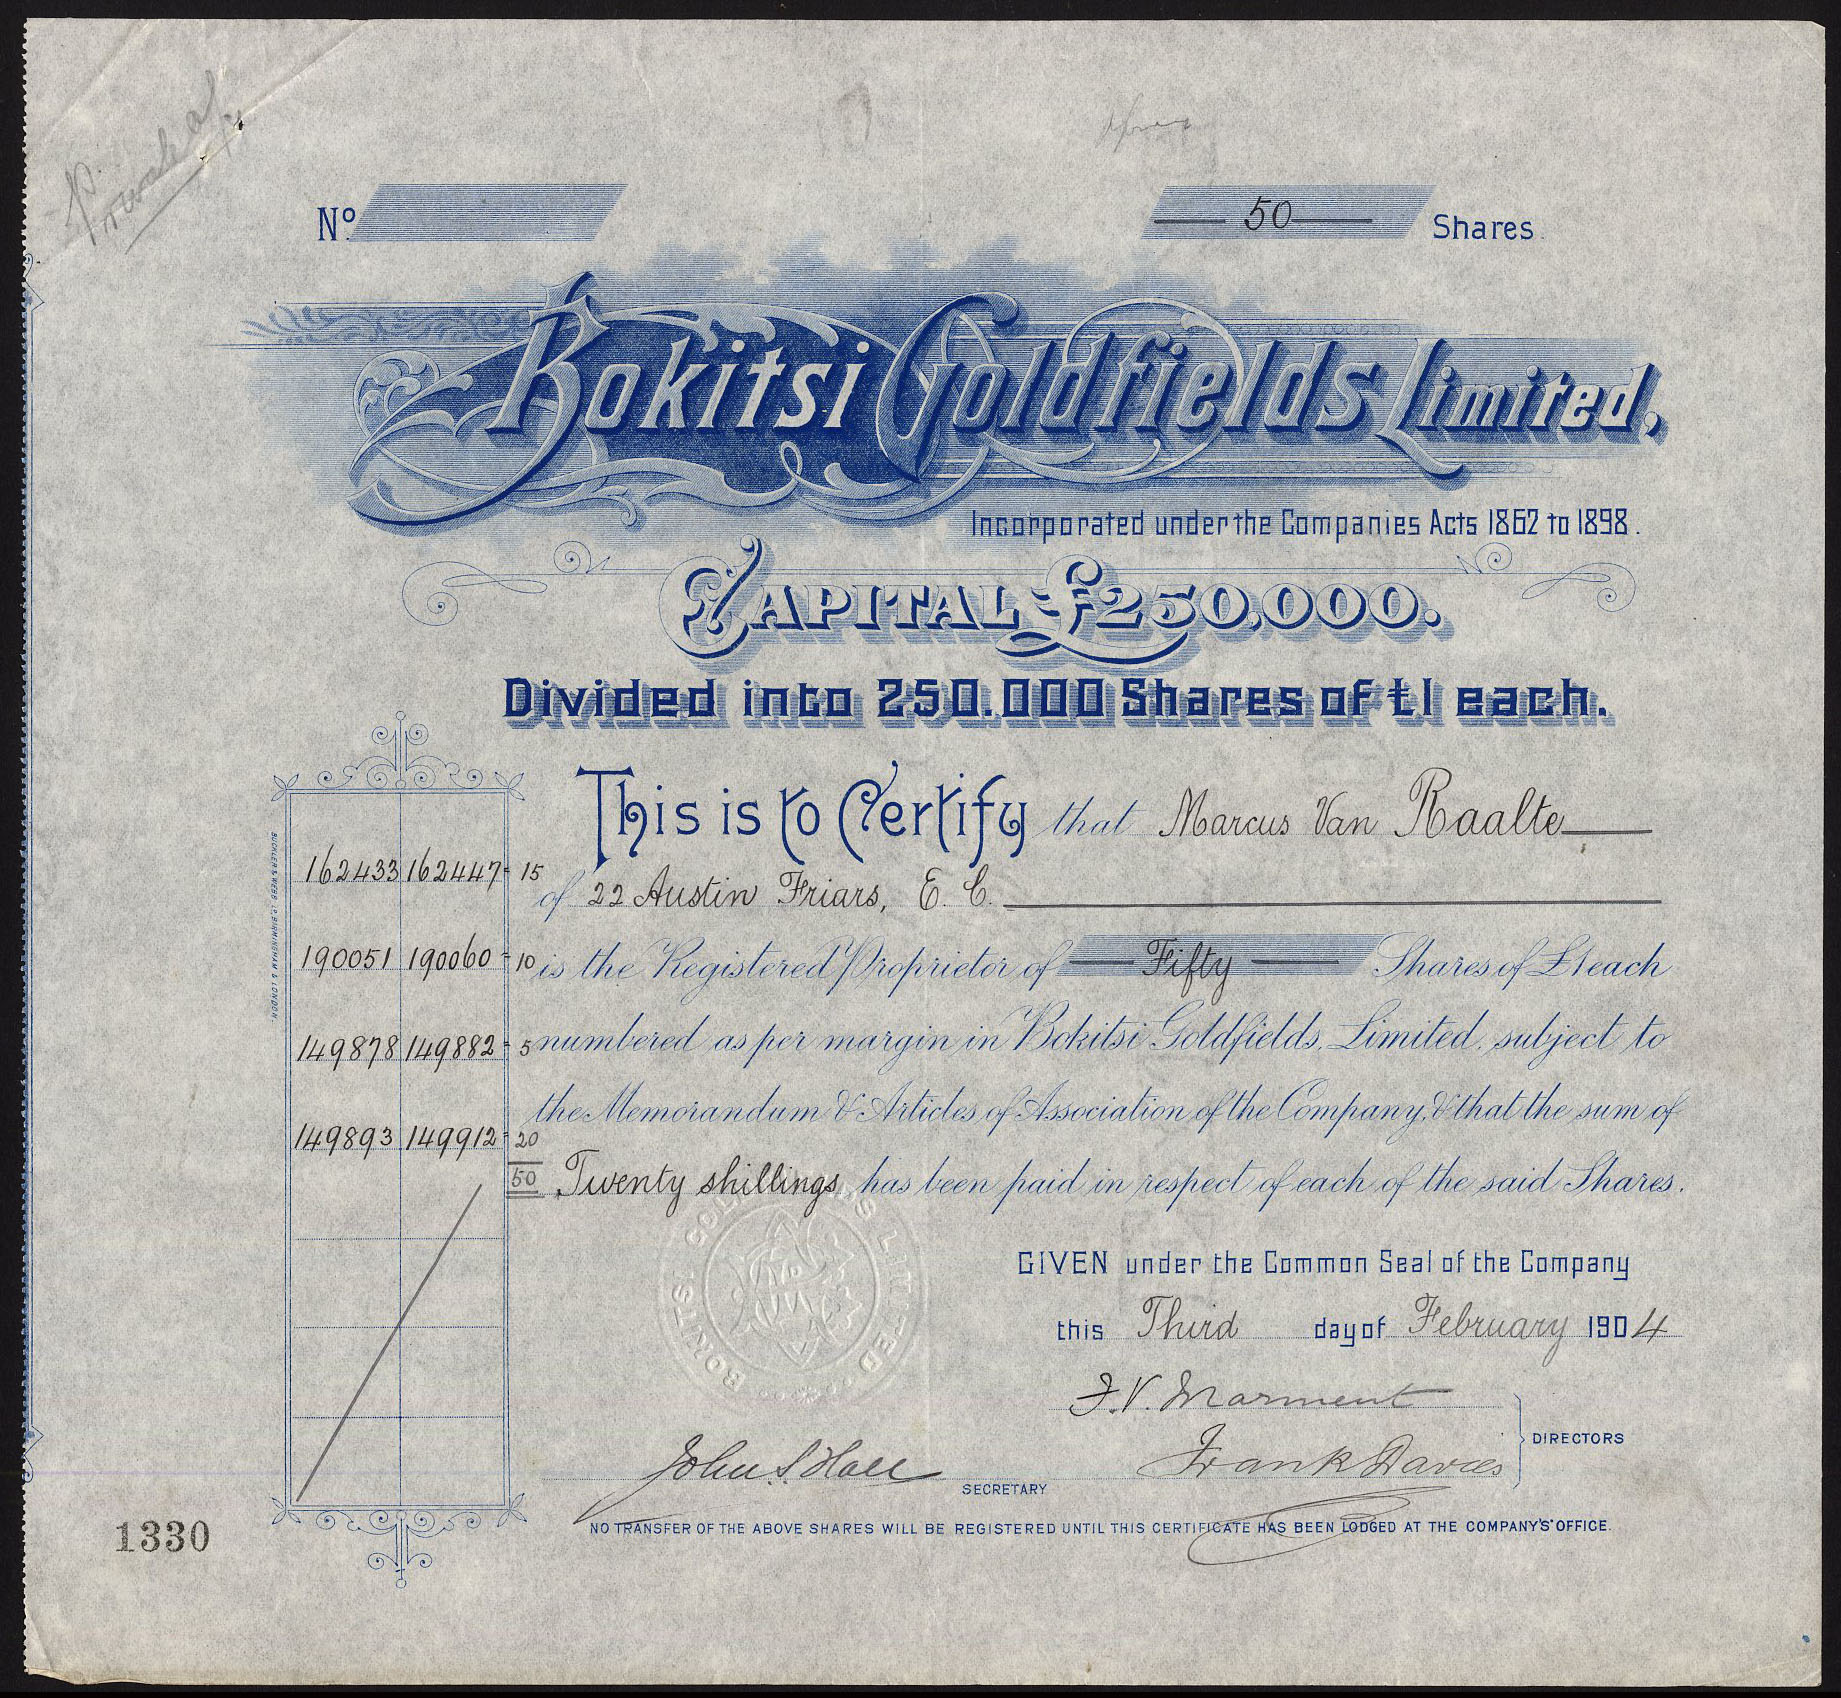 No.
50 Shares.
Bokitsi Goldfields Limited,
Incorporated under the Companies Acts 1862 to 1898.
CAPITAL £250,000.
Divided into 250.000 Shares of £1 each.
This is to Certify that Marcus Van Raalte
of 22 Austin Friars, E. C.
is the Registered Proprietor of Fifty Shares of £1 each
numbered as per margin in Bokitsi Goldfields, Limited, subject to
the Memorandum & Articles of Association of the Company, & that the sum of
Twenty shillings has been paid in respect of each of the said Shares.
162433 162447 - 15
190051 190060 - 10
149878 149882 - 5
149893 149912 - 20
50
BUCKLER & WEBB LD BIRMINGHAM & LONDON.
GIVEN under the Common Seal of the Company
this Third day of February 1904
BOKITSI GOLDFIELDS LIMITED
F. V. Marment
Frank Davies
DIRECTORS
John S. Hall
SECRETARY
NO TRANSFER OF THE ABOVE SHARES WILL BE REGISTERED UNTIL THIS CERTIFICATE HAS BEEN LODGED AT THE COMPANY'S OFFICE.
1330